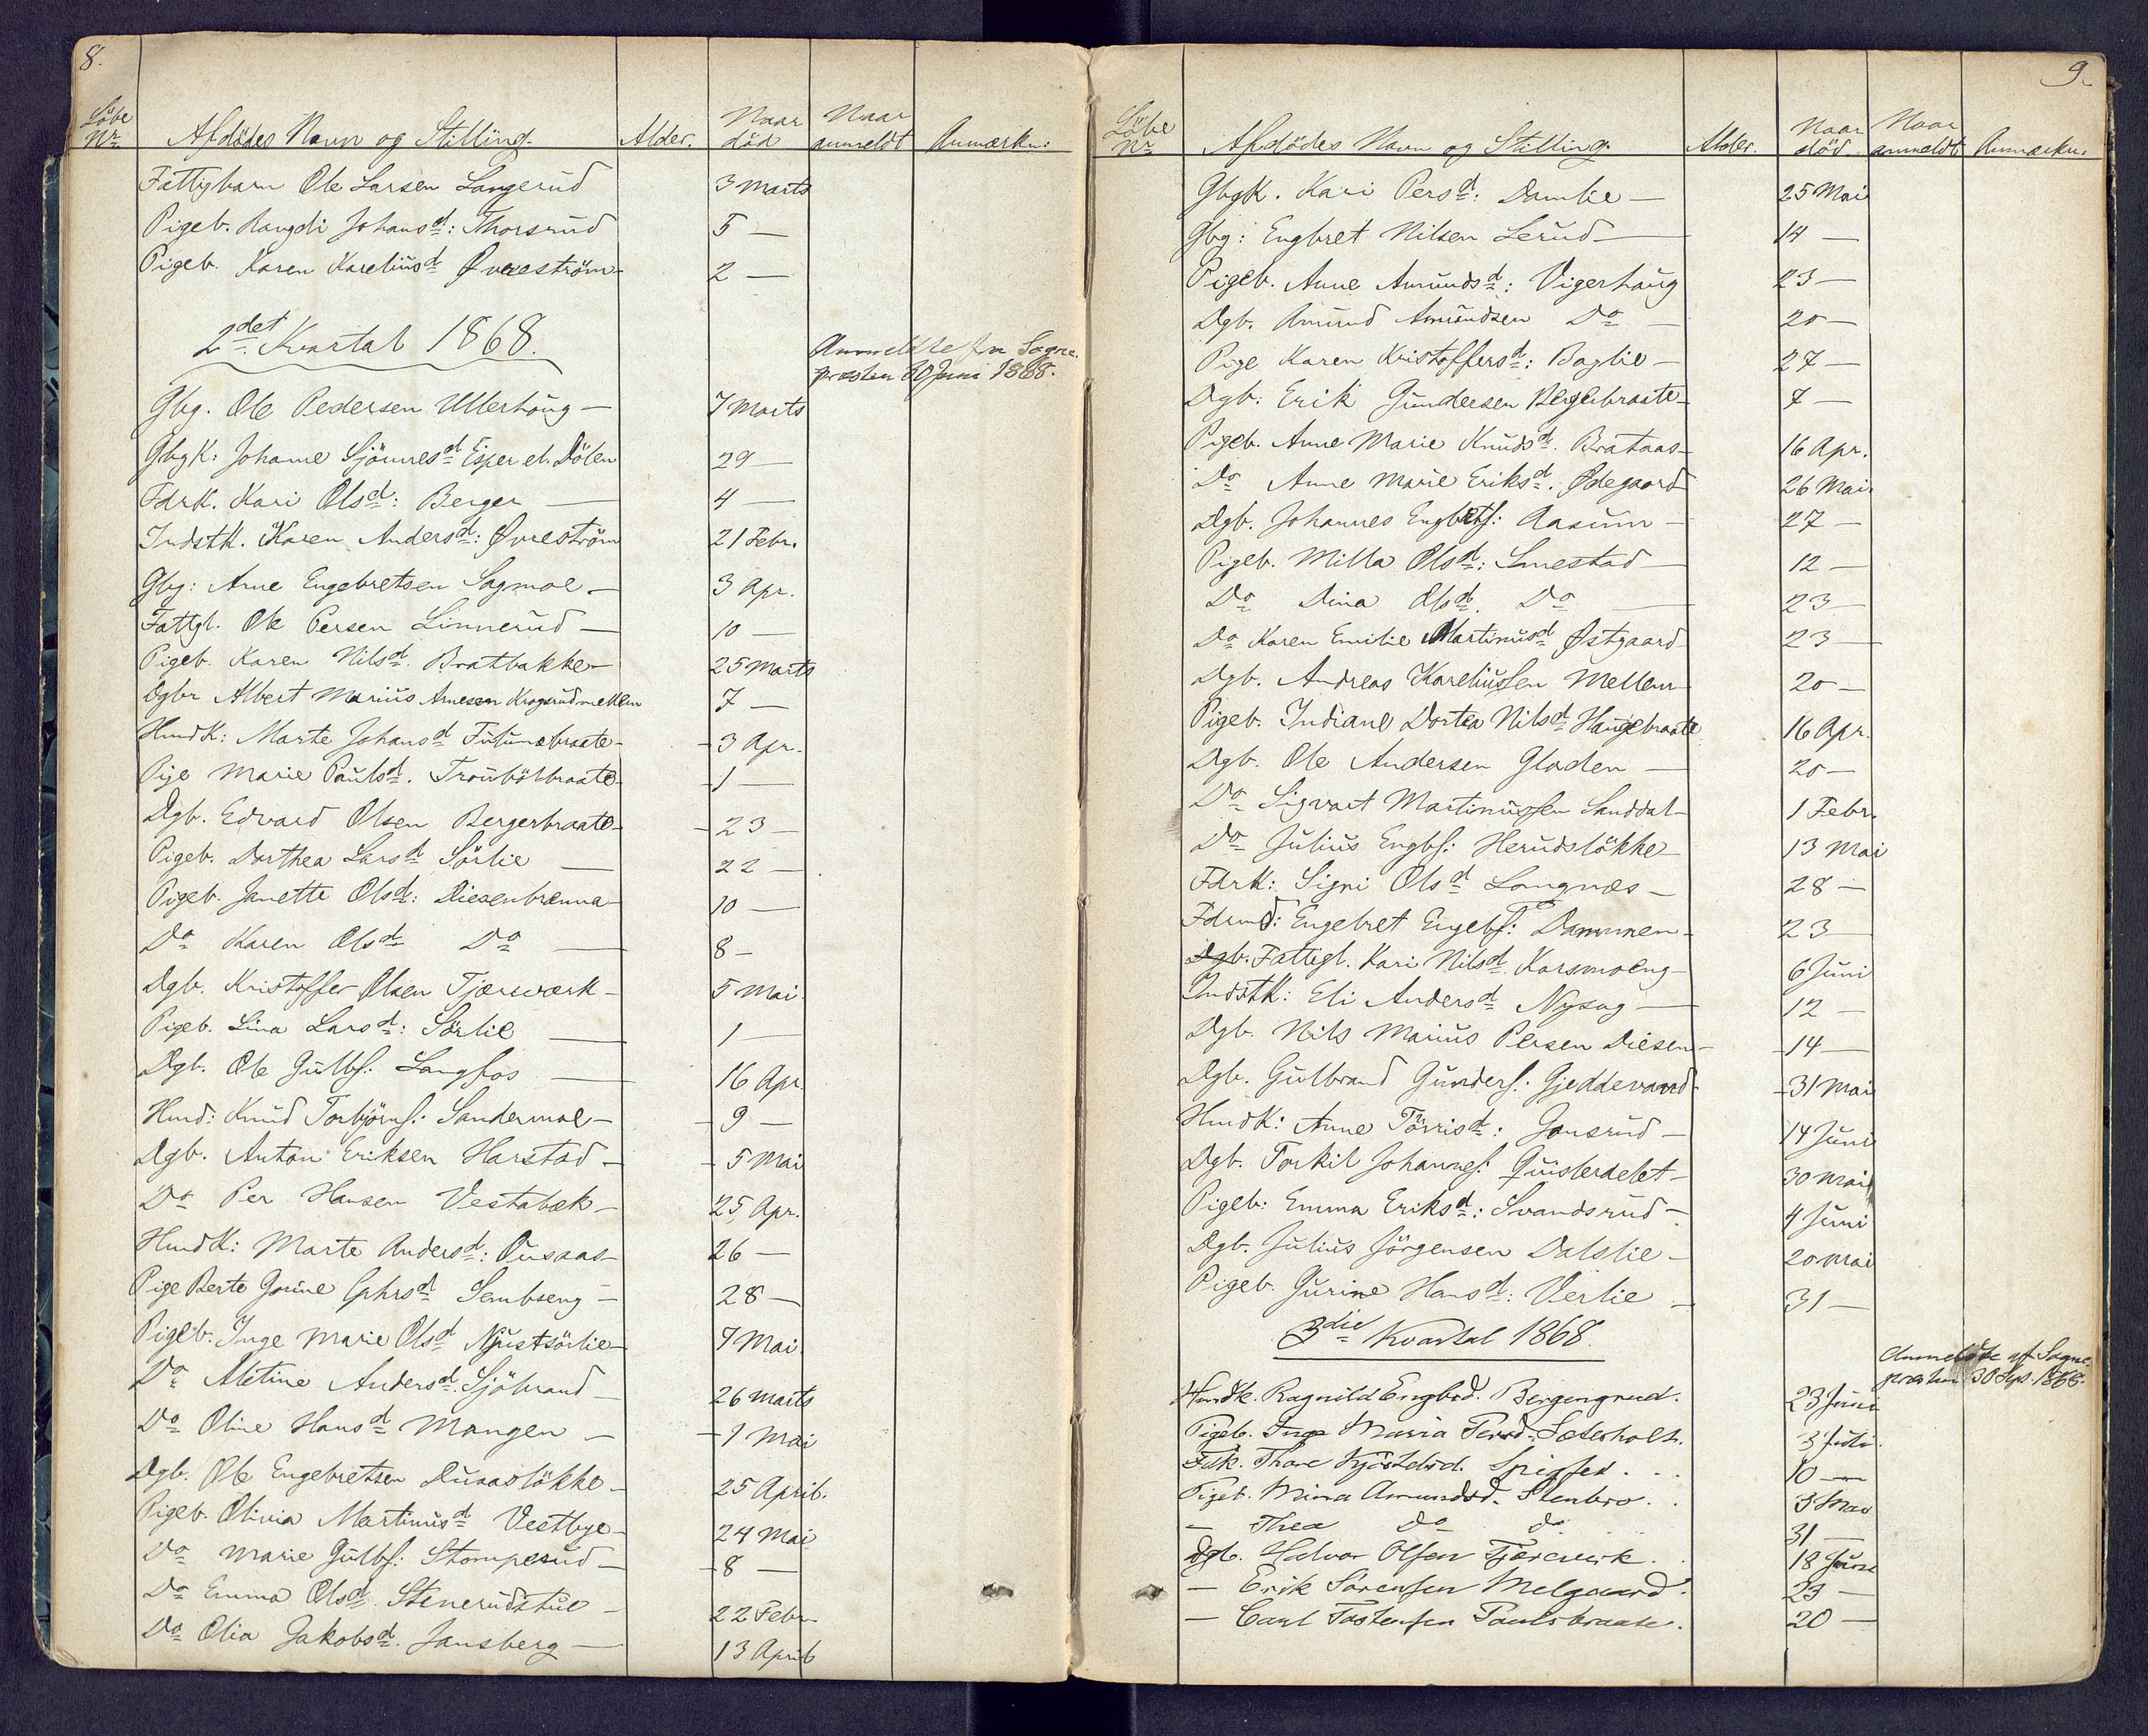 8.
Löbe Nr Afdödes Navn og Stilling. Alder. Naar död Naar anmeldt Anmærkn:
Fattigbarn Ole Larsen Langerud 3 Marts
Pigeb. Rangdi Johansd: Thorsrud 5 —
Pigeb. Karen Kareliusd Øvreström 2 —
2det Kvartal 1868.
Anmeldte fra Sogne-
præsten 30 Juni 1868.
Gbg. Ole Pedersen Ullerhaug — 7 Marts
GbgK: Johanne Sjönnesd Esper et. Dölen 29 —
FdrK. Kari Olsd: Berger — 4 —
IndstK. Karen Andersd: Øvreström 21 Febr.
Gbg: Arne Engebretsen Sagmoe — 3 Apr.
Fattgl. Ole Persen Linnerud — 10 —
Pigeb. Karen Nilsd. Bratbakke — 25 Marts
Dgbr Albert Marius Arnesen Krogsrudmellem 7 —
HmdK: Marte Johansd Futumsbraate — 3 Apr.
Pige Marie Paulsd. Troubölbraate — 1 —
Dgb. Edvard Olsen Bergerbraate — 23 —
Pigeb. Dorthea Larsd Sörlie — 22 —
Pigeb. Janette Olsd: Diesenbrænna — 10 —
Do Karen Olsd Do — 8 —
Dgb. Kristoffer Olsen Tjærewærk — 5 Mai
Pigeb. Lina Larsd: Sörlie — 1 —
Dgb. Ole Gulbs: Langfos — 16 Apr.
Hmd: Knud Torbjörns: Sandermoe — 9 —
Dgb. Anton Eriksen Harstad — 5 Mai
Do Per Hansen Vestabæk — 25 Apr.
HmdK: Marte Andersd: Ousaas — 26 —
Pige Berte Gorine Cphrsd Sembseng — 28 —
Pigeb: Inge Marie Olsd Njustsörlie — 7 Mai.
Do Aletine Andersd. Sjöbrand — 26 Marts
Do Oline Hansd Mangen — 1 Mai
Dgb. Ole Engebretsen Dusaslökke — 25 April.
Pigeb. Olivia Martinusd Vestbye — 24 Mai
Do Marie Gulbs: Stomperud — 8 —
Do Emma Olsd. Stenerudstue — 22 Febr.
Do Olia Jakobsd. Jansberg — 13 April
9.
Löbe Nr Afdödes Navn og Stilling. Alder. Naar död Naar anmeldt Anmærkn.
GbgK. Kari Persd: Damlie — 25 Mai
Gbg: Engbret Nilsen Lerud — 14 —
Pigeb. Anne Amundsd: Vigerhaug 23 —
Dgb. Amund Amundsen Do — 20 —
Pige Karen Kristoffersd: Baglie — 27 —
Dgb. Erik Gundersen Bergerbraate — 7 —
Pigeb. Anne Marie Knudsd. Brataas — 16 Apr.
Do Anne Marie Eriksd. Ødegaard 26 Mai.
Dgb. Johannes Engbrets: Aasum — 27 —
Pigeb. Milla Olsd: Smestad — 12 —
Do Dina Olsd. Do — 23 —
Do Karen Emilie Martinusd Østgaard 23 —
Dgb. Andreas Kareliussen Mellem — 20 —
Pigeb. Indiane Dortea Nilsd Haugebraate 16 Apr.
Dgb. Ole Andersen Gloden — 20 —
Do Sigvart Martinussen Sanddal — 1 Febr.
Do Julius Engbs: Herudslökke 13 Mai
FdrK: Signi Olsd Langnæs — 28 —
Fdrmd: Engebret Engebs: Dammen — 23 —
Dgb. Fattigl. Kari Nilsd Korsmoeng — 6 Juni
IndstK: Eli Andersd Nysag — 12 —
Dgb. Nils Marius Persen Diesen — 14 —
Dgb. Gulbrand Gunders: Gjeddevand — 31 Mai
HmdK: Anne Törrisd: Jonsrud — 14 Juni
Dgb. Torkil Johannes: Quisterdelet — 30 Mai
Pigeb: Emma Eriksd: Svandsrud — 4 Juni
Dgb. Julius Jörgensen Dalslie — 20 Mai
Pigeb. Gurine Hansd: Verlie — 31 —
3die Kvartal 1868.
Anmeldte af Sogne-
præsten 30 Sept. 1868.
Hmdk. Ragnild Engbsd. Bergengrud. 23 Juni
Pigeb. Inge Maria Persd. Sæterholt. 3 Juli.
Fdk. Thore Kjöstelsd. 10 —
Pigeb. Mina Amundsd. Stenbro. 3 Mai
— Thea do do 31 —
Dgb. Halvor Olsen Tjæreverk. 18 Juni
— Erik Sörensen Melgaard. 23 —
— Carl Tostensen Paulsbraate. 20 —